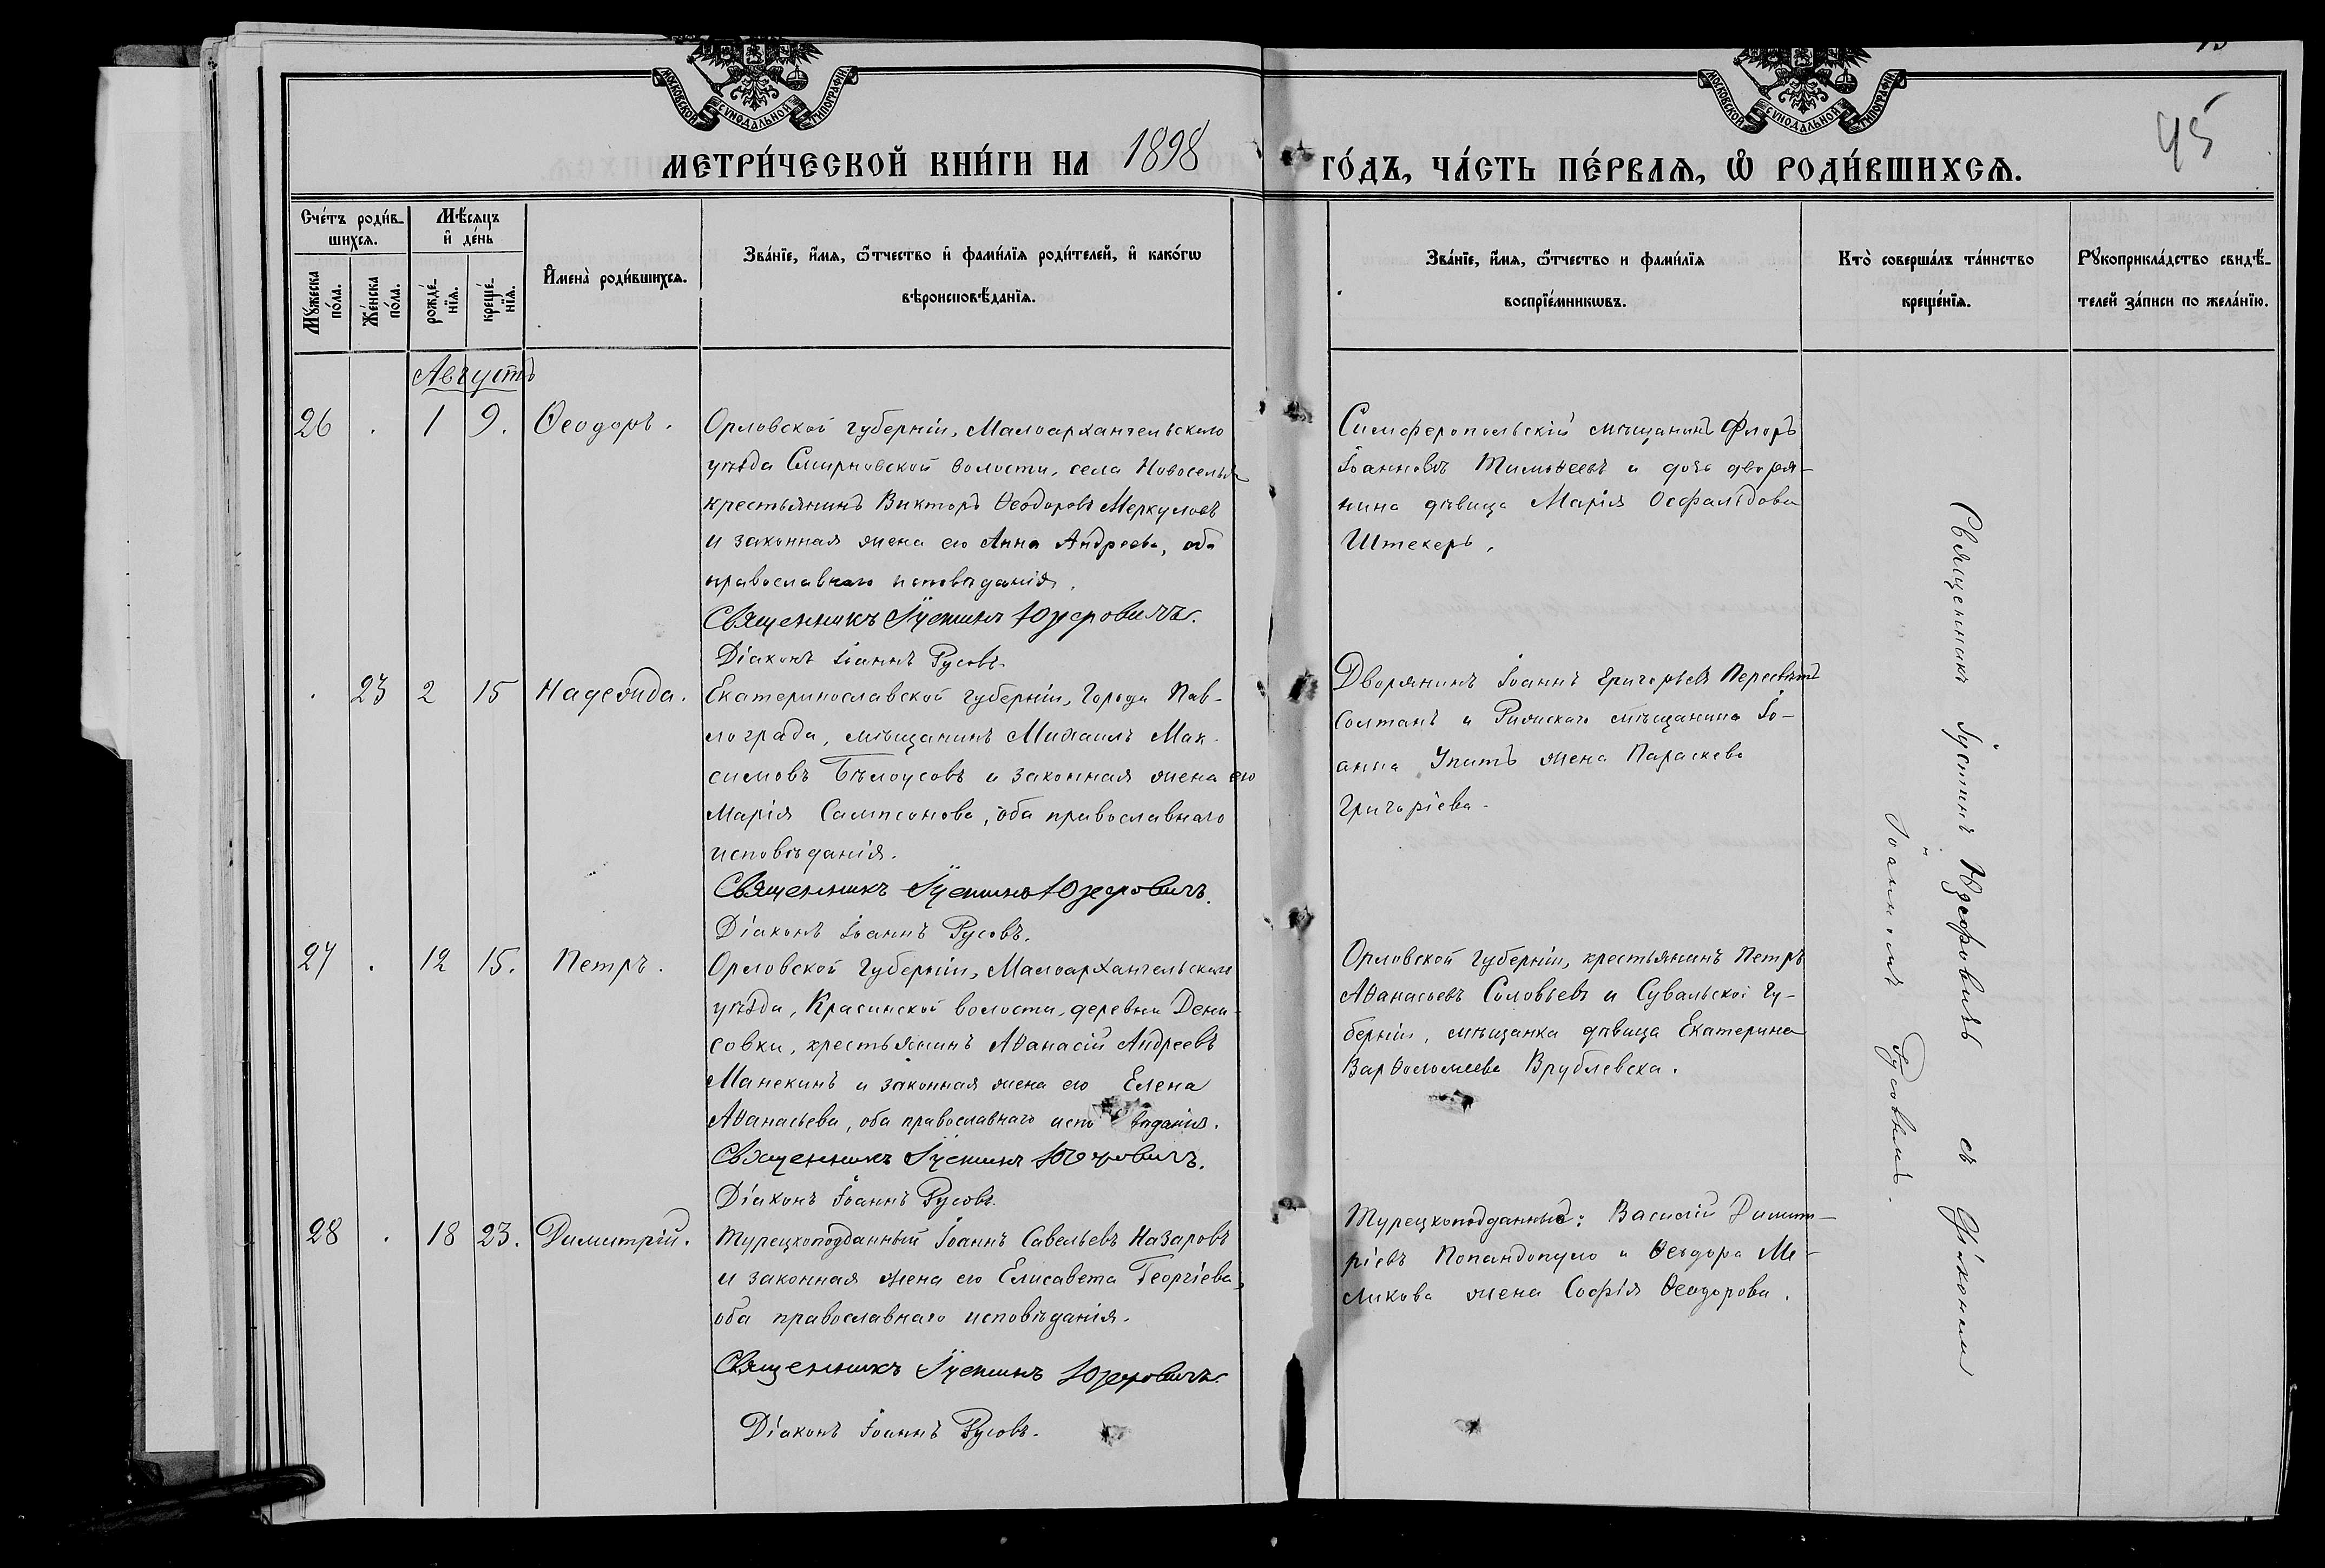 МОСКОВСКОЙ СѴНОДАЛЬНОЙ ТИПОГРАФІИ
МОСКОВСКОЙ СѴНОДАЛЬНОЙ ТИПОГРАФІИ
45
МЕТРИ́ЧЕСКОЙ КНИ́ГИ НА 1898 ГО́ДЪ, ЧА́СТЬ ПЕ́РВАѦ, Ѡ҆ РОДИ́ВШИХСѦ.
Сче́тъ роди́в-
шихсѧ.
Мꙋ́жеска по́ла.
Же́нска по́ла.
Мѣ́сѧцъ
и҆ де́нь
рожде́-
нїѧ.
креще́-
нїѧ.
И҆мена̀ роди́вшихсѧ.
Зва́нїе, и҆́мѧ, ѻ҆́тчество и҆ фами́лїѧ роди́телей, и҆ како́гѡ
вѣроисповѣ́данїѧ.
Зва́нїе, и҆́мѧ, ѻ҆́тчество и фами́лїѧ
воспрїе́мникѡвъ.
Кто̀ соверша́лъ та́инство
креще́нїѧ.
Рꙋкоприкла́дство свидѣ́-
телей за́писи по жела́нїю.
Августъ
26 . 1 9. Ѳеодоръ.
Орловской губерніи, Малоархангельскаго
уѣзда Смирновской волости, села Новоселья
крестьянинъ Викторъ Ѳеодоровъ Меркуловъ
и законная жена его Анна Андреева, оба
православнаго исповѣданія.
Священникъ Іустинъ Юзефовичъ.
Діаконъ Іоаннъ Русовъ.
Симферопольскій мѣщанинъ Флоръ
Іоанновъ Тимоѳеевъ и дочь дворя-
нина дѣвица Марія Осфальдова
Штекеръ.
. 23 2 15 Надежда.
Екатеринославской губерніи, города Пав-
лограда, мѣщанинъ Михаилъ Мак-
симовъ Бѣлоусовъ и законная жена его
Марія Сампсонова, оба православнаго
исповѣданія.
Священникъ Іустинъ Юзефовичъ.
Діаконъ Іоаннъ Русовъ.
Дворянинъ Іоаннъ Григорьевъ Пересвѣтъ
Солтанъ и Рижскаго мѣщанина Іо-
анна Упитъ жена Параскева
Григоріева.
27 . 12 15. Петръ.
Орловской губерніи, Малоархангельскаго
уѣзда, Красинской волости, деревни Дени-
совки, крестьянинъ Аѳанасій Андреевъ
Манекинъ и законная жена его Елена
Аѳанасьева, оба православнаго исповѣданія.
Священникъ Іустинъ Юзефовичъ.
Діаконъ Іоаннъ Русовъ.
Орловской губерніи, крестьянинъ Петръ
Аѳанасьевъ Соловьевъ и Сувальской гу-
берніи, мѣщанка дѣвица Екатерина
Варѳоломеева Врублевска.
28 . 18 23. Димитрій.
Турецкоподданный Іоаннъ Савельевъ Назаровъ
и законная жена его Елисавета Георгіева,
оба православнаго исповѣданія.
Священникъ Іустинъ Юзефовичъ.
Діаконъ Іоаннъ Русовъ.
Турецкоподданные: Василій Димит-
ріевъ Попандопуло и Ѳеодора Ме-
ликова жена Софія Ѳеодорова.
Священникъ Іустинъ Юзефовичъ съ діакономъ
Іоанномъ Русовымъ.